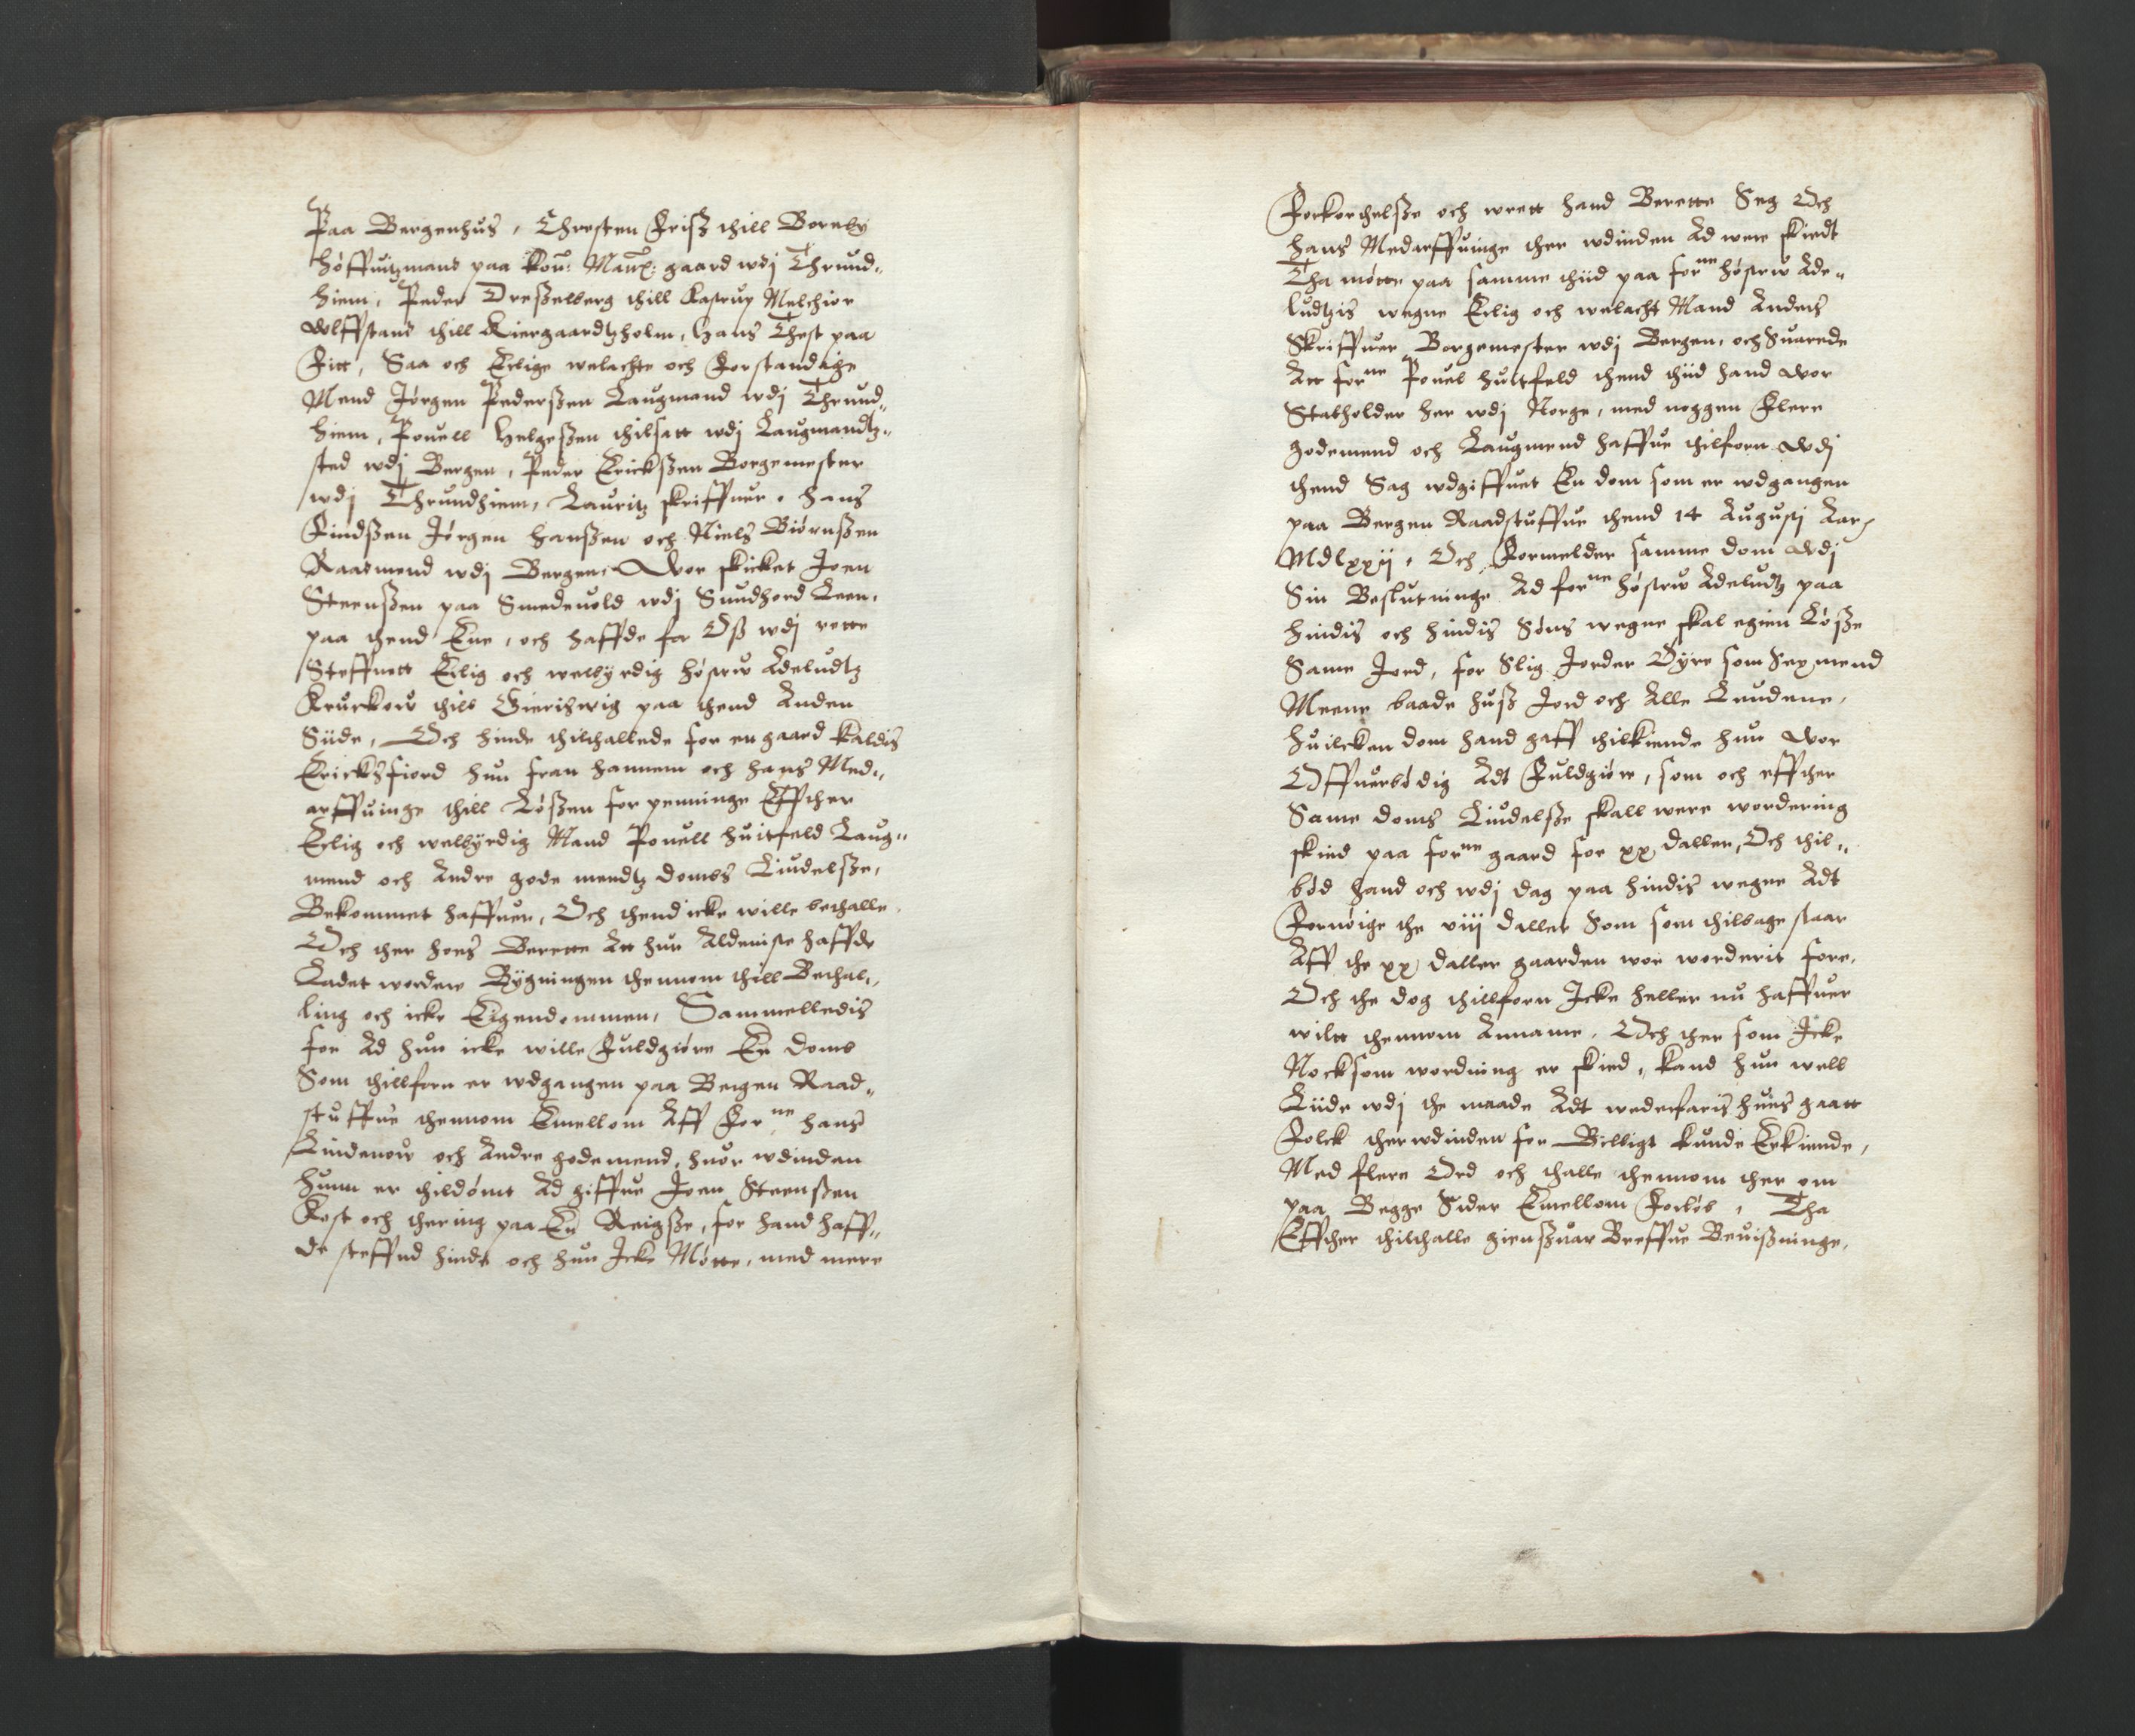 Paa Bergenhus, Chresten Friss thill Borreby
höffuitzmand paa Kon: Maytz: gaard wdj Thrund„
hiem, Peder Dresselberg thill Kastrup Melchior
Wlffstand thill Kiergaardtzholm, Hans Thest paa
Fitt, Saa och Erlige welachte och Forstandighe
Mend Jørgen Pederssen Laugmand wdj Thrund„
hiem, Pouell Helgessen thilsatt wdj Laugmandtz„
sted wdj Bergen, Peder Erickssen Borgemester
wdj Thrundhiem, Lauritz skriffuer, Hans
Findssen Jørgen Hanssen och Niels Biörnssen
Raadmend wdj Bergen, Wor skicket Joen
Steenssen paa Smedeuold wdj Sundhord Leen,
paa thend Ene, och haffde for Oss wdj rette
Steffnett Erlig och welbyrdig höstrw Adeludtz
Kruckow thill Gierisswig paa thend Anden
Siide, Och hinde thilthallede for en gaard kaldis
Ericksfiord hun fran hannem och hans Med„
arffuinge thill Lössen for penninge Effther
Erlig och welbyrdig Mand Pouell huitfeld Laug„
mend och Andre gode mendtz domds Liudelsse,
Bekommet haffuer, Och thend icke wille bethalle,
Och ther hoes Berette Att hun Aldeniste haffde
Ladet wordere Bygningen thennom thill Bethal„
ling och icke Eigendommen, Sammelledis
for Ad hun icke wille Fuldgiöre En domb
Som thillforn er wdgangen paa Bergen Raad„
stuffue thennom Emellom Aff For ne hans
Lindenow och Andre gode mend, huor wdinden
hunn er thildömt Ad giffue Joen Steenssen
Kost och thering paa En Reigsse, for hand haff„
de steffnd hinde och hun Icke Mötte, med mere
Forkorthelsse och wrett hand Berette Seg Och
hans Medarffuinge ther wdinden Ad were skiedt
Tha mötte paa samme thiid paa for ne höstrw Ade„
ludtzis wegne Erlig och welacht Mand Anders
Skriffuer Borgemester wdj Bergen, och Suarede
Att for ne Pouel huitfeld thend thiid hand wor
Statholder her wdj Norge, med noggen Flere
godemend och Laugmend haffue thilforn wdj
thend Sag wdgiffuet En dom som er wdgangen
paa Bergen Raadstuffue thend 14 Augustj Aar
Mdlxxij, Och Formelder samme dom wdj
Sin Beslutninge Ad for ne höstrw Adeludtz paa
hindis och hindis Söns wegne skal egien Lösse
Same Jord, for Slig Jorder Dyre som Sex mend
Meene baade huss Jord och Alle Lundene,
huilcken dom hand gaff thilkiende hun wor
Offuerbödig Adt Fuldgiöre, som och effther
Same doms Liudelsse skall were wordering
skied paa for ne gaard for xx daller, Och thil„
bød hand och wdj dag paa hindis wegne Adt
Fornöige the viij daller Som som thilbage staar
Aff the xx daller gaarden wor worderit fore,
Och the dog thillforn Icke heller nu haffuer
wiltt thennom Anname, Och ther som Icke
Nocksom wordning er skied, kand hun well
Liide wdj the maade Adt wederfaris hues gaatt
Folck ther wdinden for Billigt kunde Erkiende,
Med flere Ord och thalle thennom ther om
paa Begge Sider Emellom Forløb, Tha
Effther thilthalle giensswar Breffue Beuissninge,